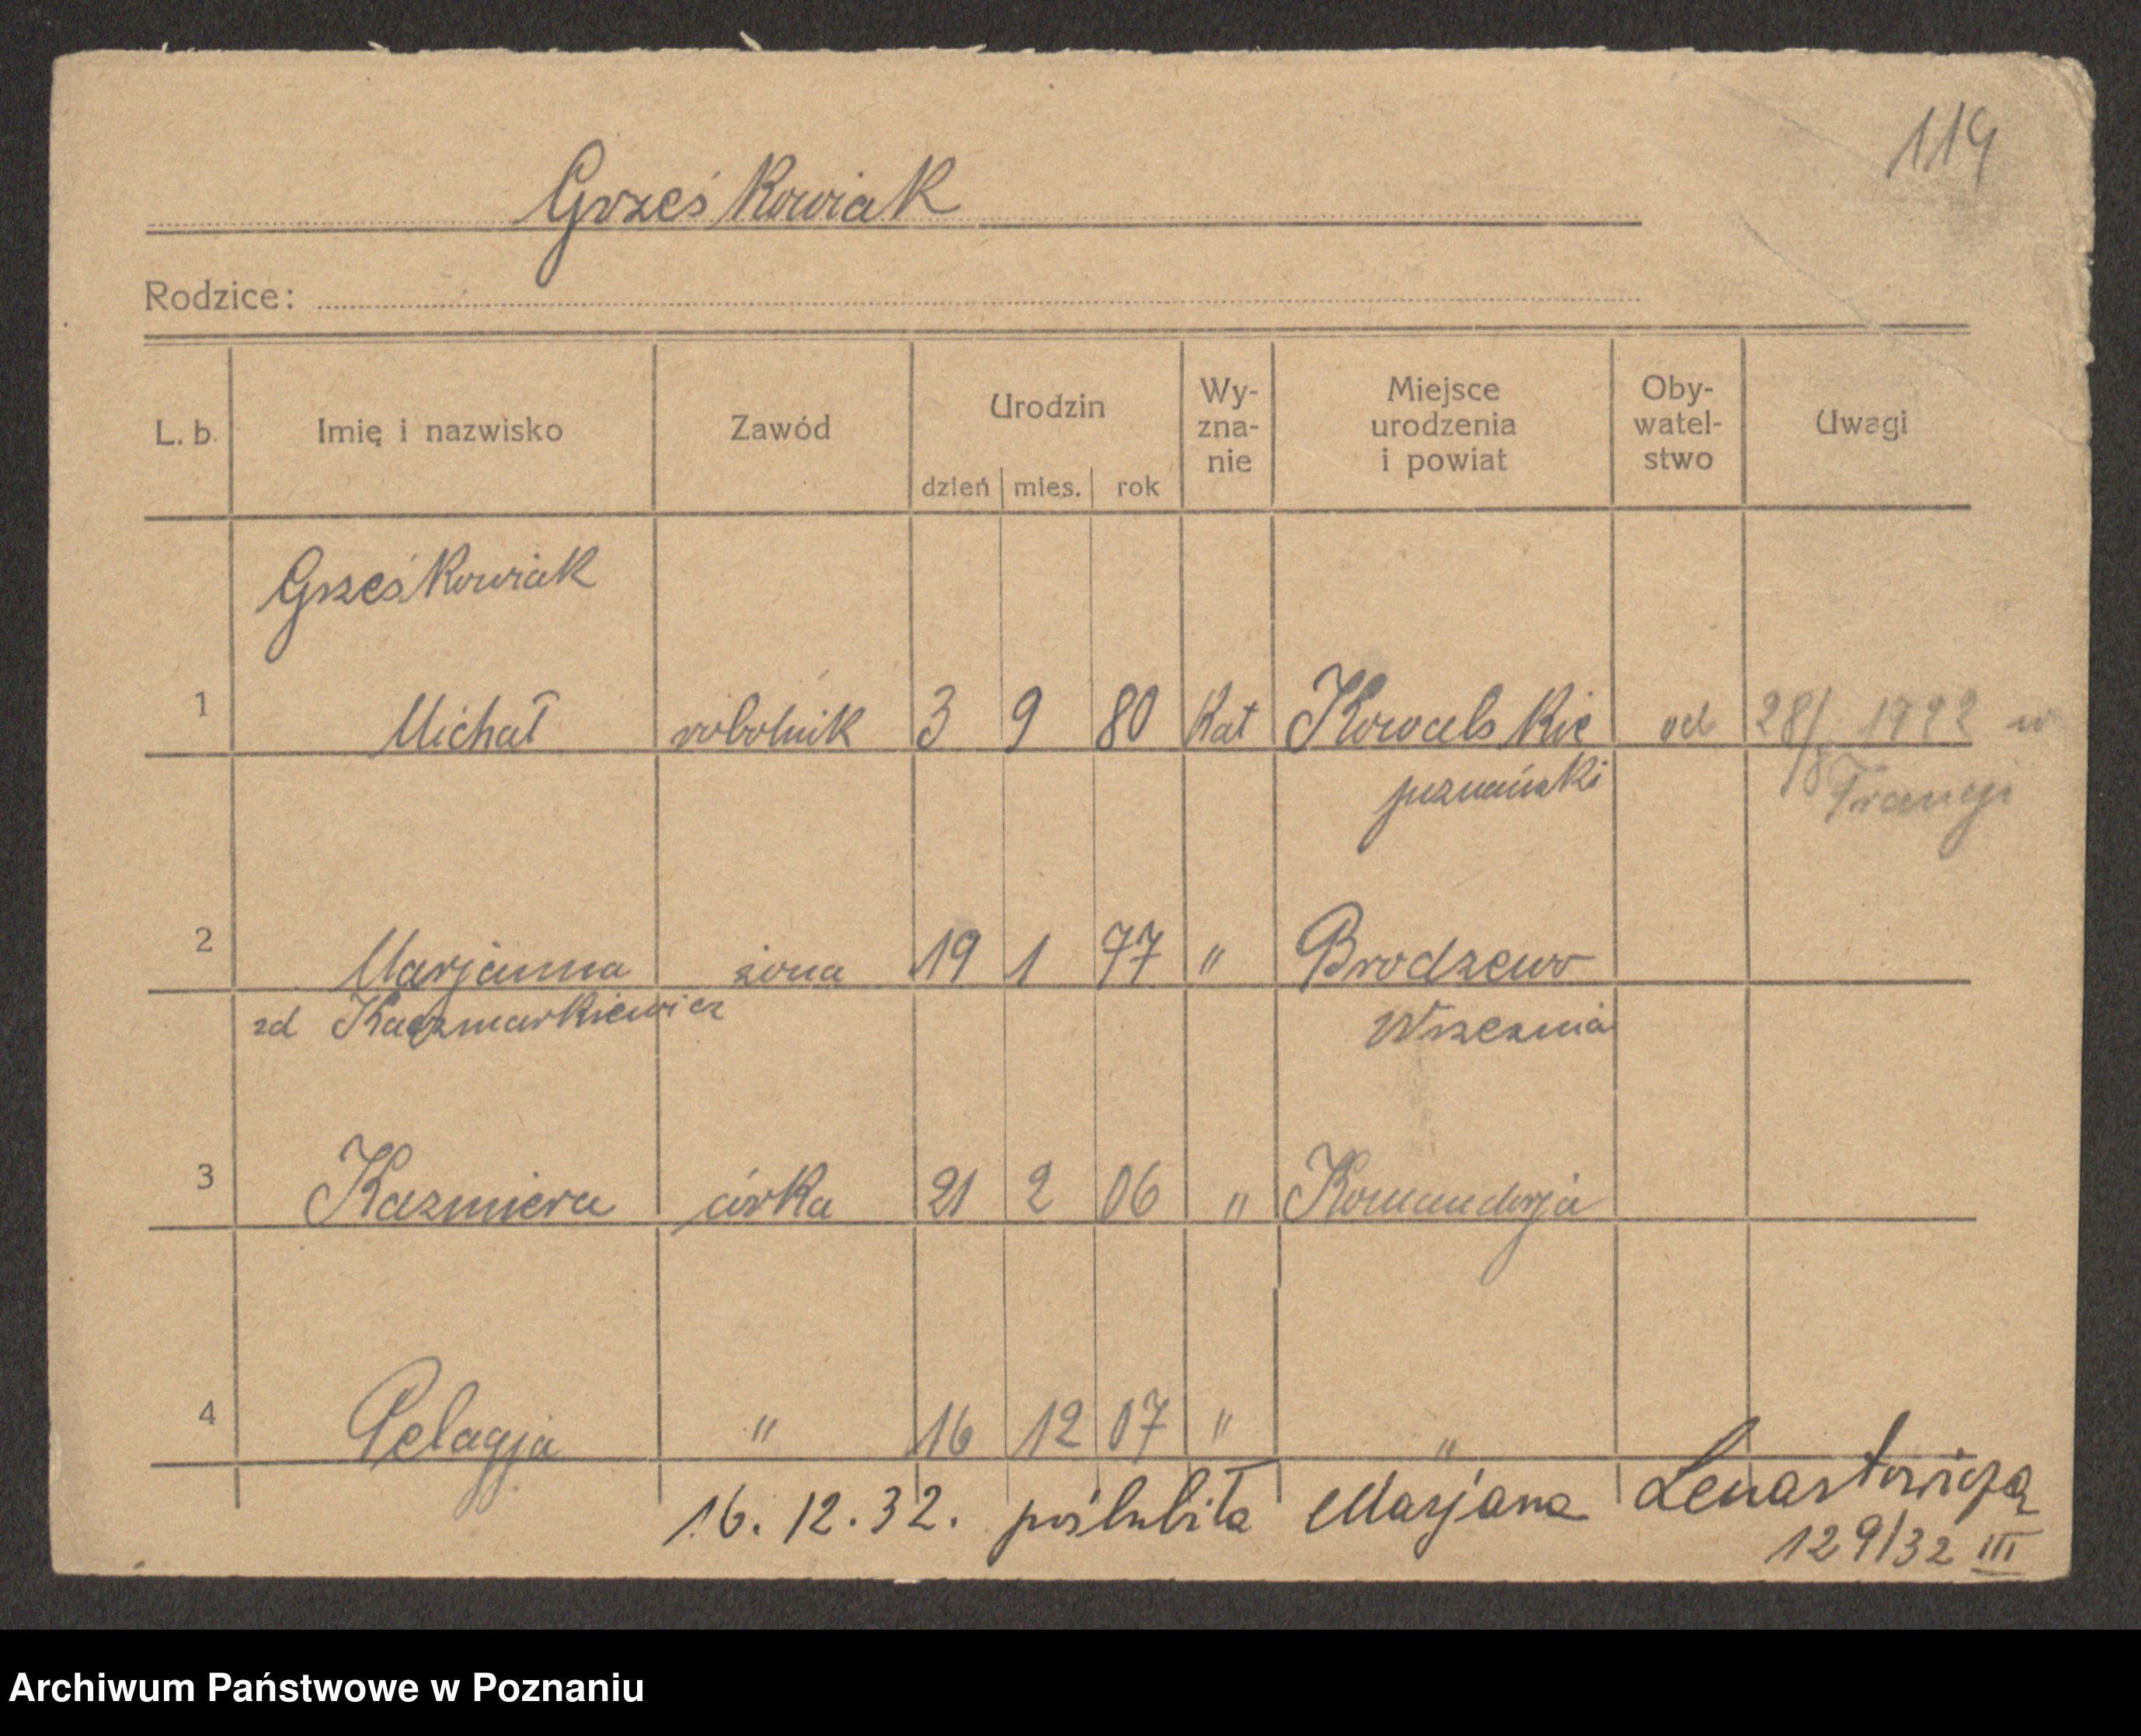 119
Grześkowiak
Rodzice:
L. b. Imię i nazwisko Zawód Urodzin dzień mies. rok Wy-zna-nie Miejsce urodzenia i powiat Oby-watel-stwo Uwagi
Grześkowiak
1 Michał robotnik 3 9 80 Kat Kowalskie od 28/8 1922 w
poznański Francji
2 Marjanna żona 19 1 77 " Brodzewo
zd Kaczmarkiewicz Wrzesnia
3 Kazmiera córka 21 2 06 " Komandorja
4 Pelagja " 16 12 07 " "
16. 12. 32. poślubiła Marjana Lenartowicza
129/32 III
Archiwum Państwowe w Poznaniu